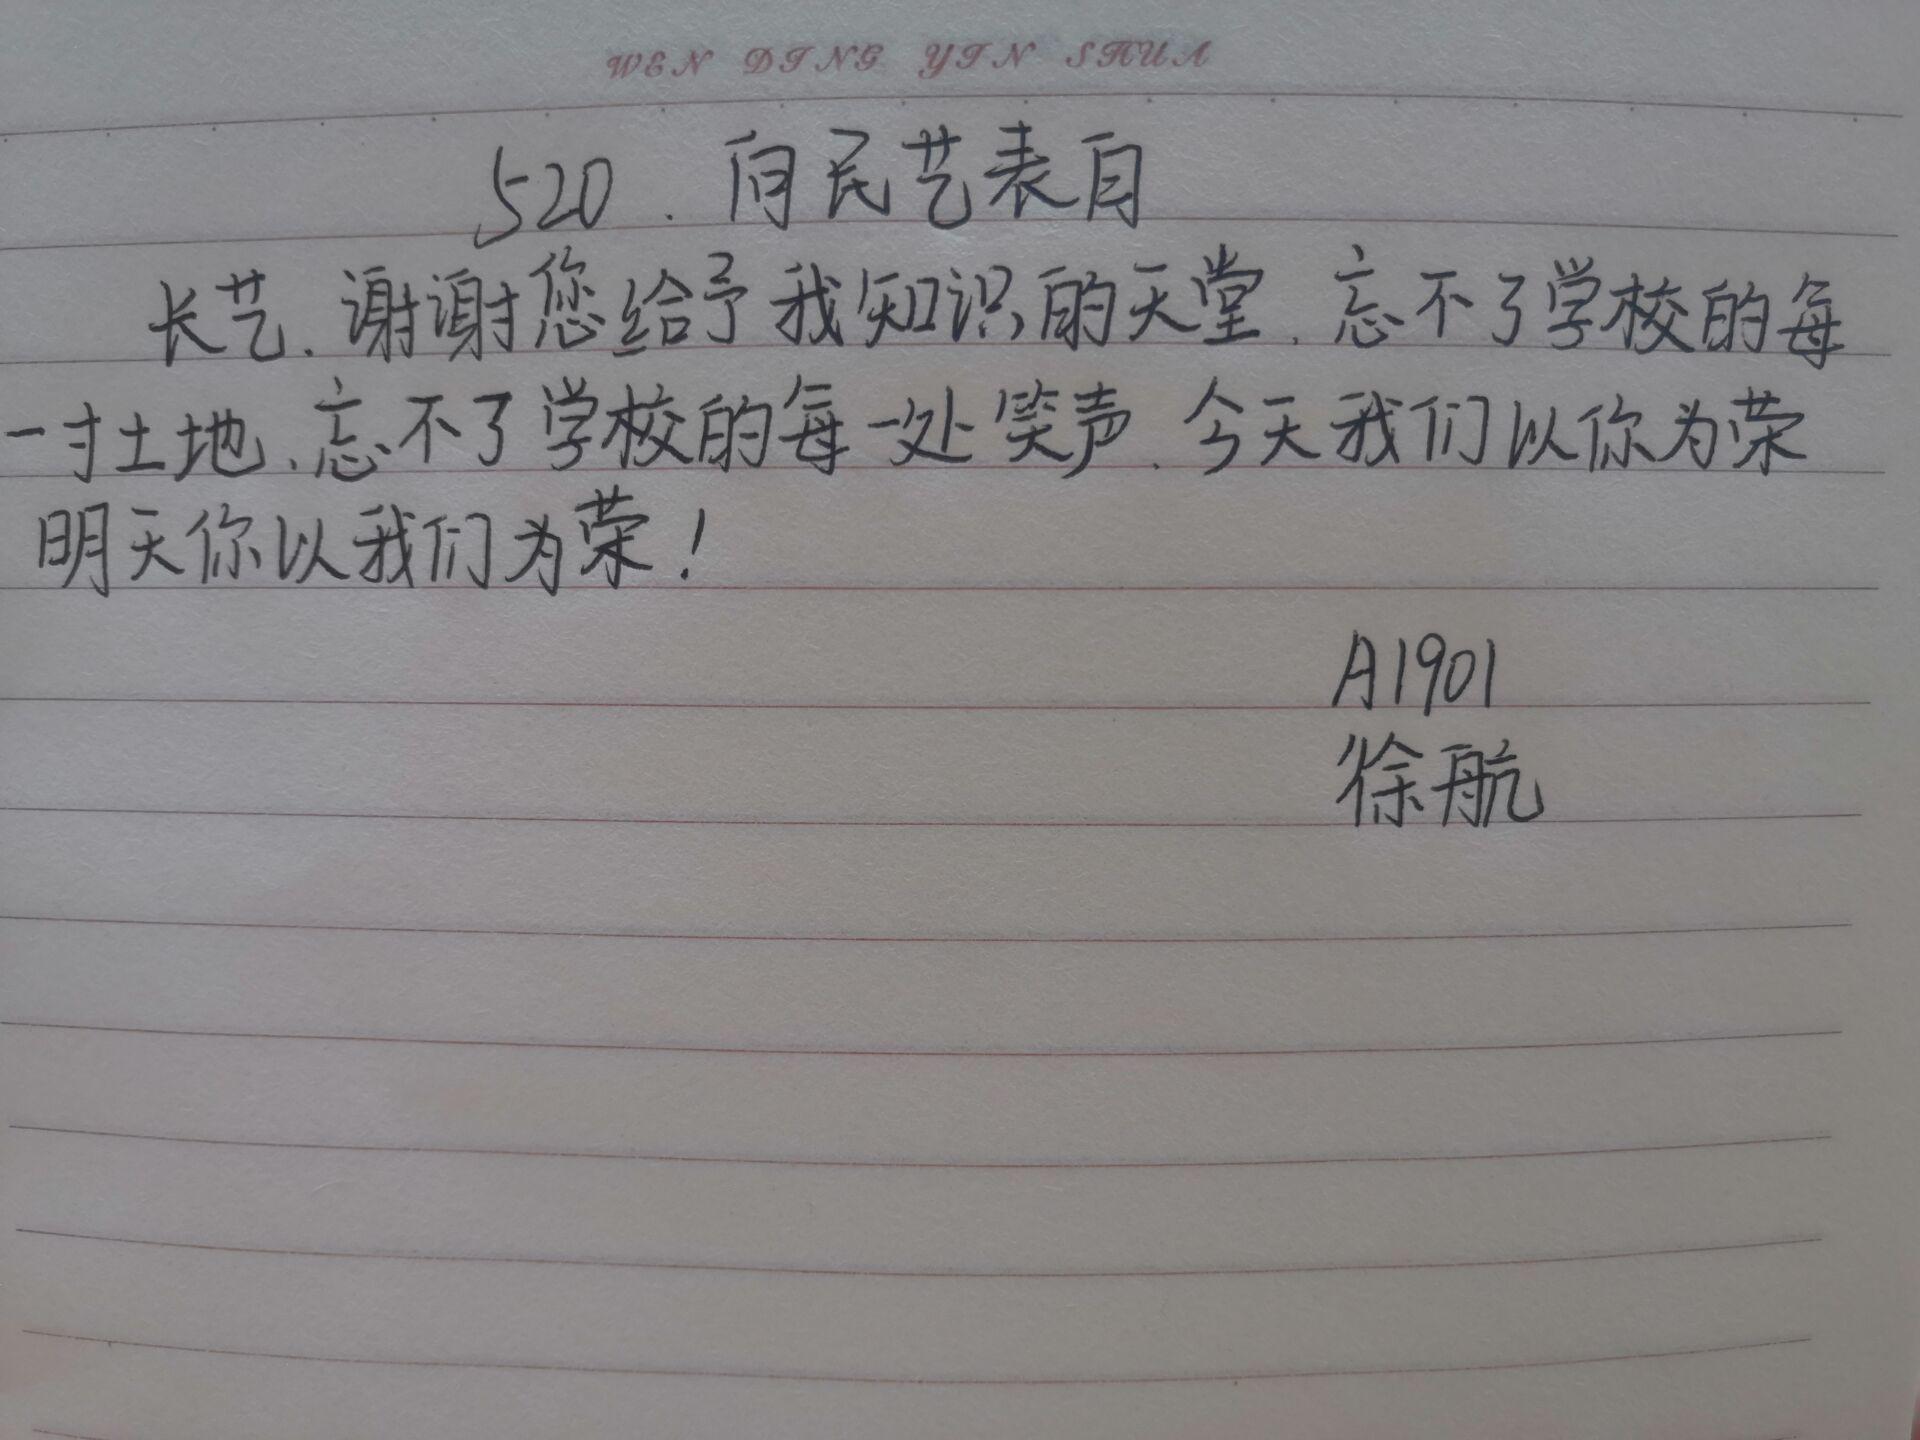 WEN DING YIN SHUA
520.向民艺表白
长艺.谢谢您给予我知识的天堂.忘不了学校的每
一寸土地.忘不了学校的每一处笑声.今天我们以你为荣
明天你以我们为荣!
A1901
徐航